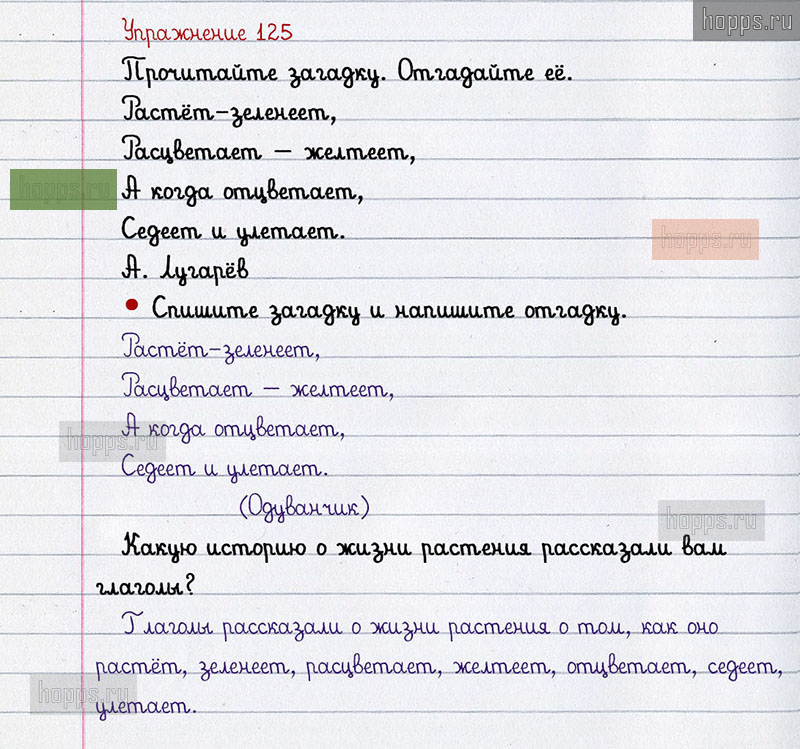 hopps.ru
Упражнение 125
Прочитайте загадку. Отгадайте её.
Растёт-зеленеет,
Расцветает – желтеет,
hopps.ru
А когда отцветает,
Седеет и улетает.
hopps.ru
А. Лугарёв
• Спишите загадку и напишите отгадку.
Растёт-зеленеет,
Расцветает – желтеет,
А когда отцветает,
hopps.ru
Седеет и улетает.
(Одуванчик)
hopps.ru
Какую историю о жизни растения рассказали вам
глаголы?
Глаголы рассказали о жизни растения о том, как оно
растёт, зеленеет, расцветает, желтеет, отцветает, седеет,
hopps.ru
улетает.